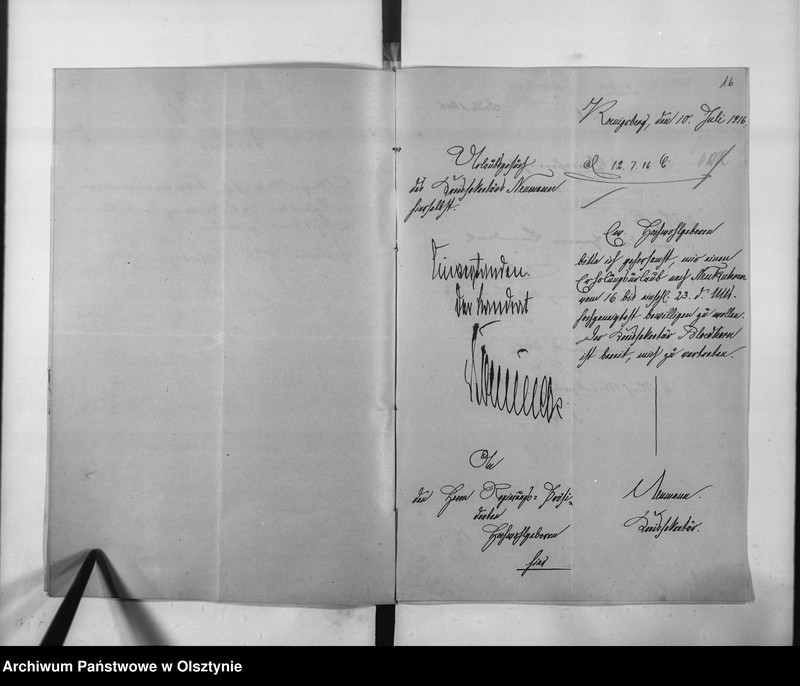 16
Koenigsberg, den 10. Juli 1916.
Urlaubsgesuch
des Kreissekretärs Neumann
hierselbst.
12.7.16
Einverstanden.
Der Landrat
Ew. Hochwohlgeboren
bitte ich gehorsamst, mir einen
Erholungsurlaub nach
vom 16 bis einschl. 23. d. Mts.
hochgeneigtest bewilligen zu wollen.
Der Kreissekretär
ist bereit, mich zu vertreten.
An
den Herrn Regierungs-Präsi-
denten
Hochwohlgeboren
hier
Neumann.
Kreissekretär.
Archiwum Państwowe w Olsztynie